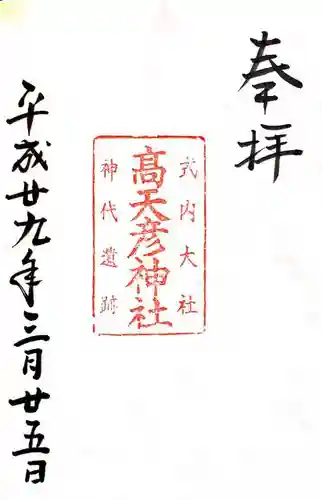 奉拝
式内大社
髙天彦神社
神代遺跡
平成廿九年三月廿五日